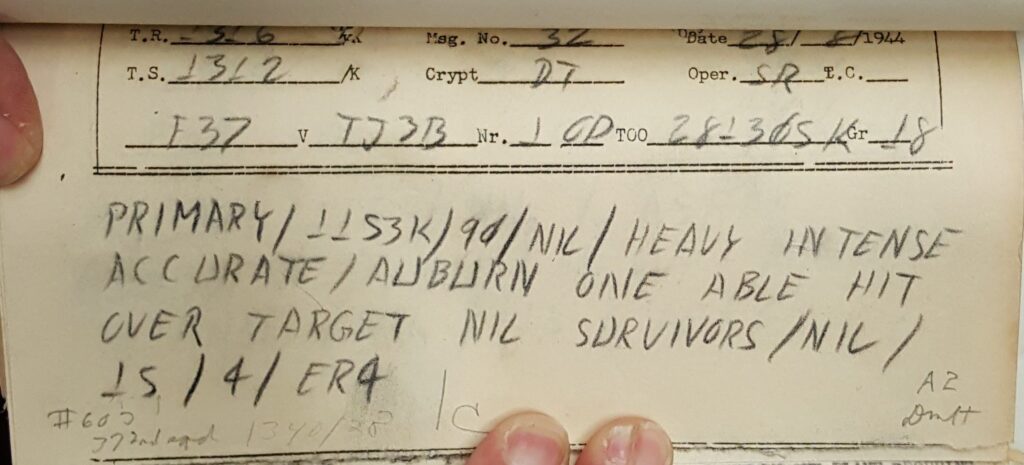 T.R. 1316 /K Msg. No. 32 Date 28/ 8/1944
T.S. 1312 /K Crypt DT Oper. SR T.C.
F37 V TJ3B Nr. 1 OP TOO 281305 K Gr 18
PRIMARY/1153K/90/NIL/HEAVY INTENSE
ACCURATE/AUBURN ONE ABLE HIT
OVER TARGET NIL SURVIVORS/NIL/
15/4/ER4
A2
#603
1340/28